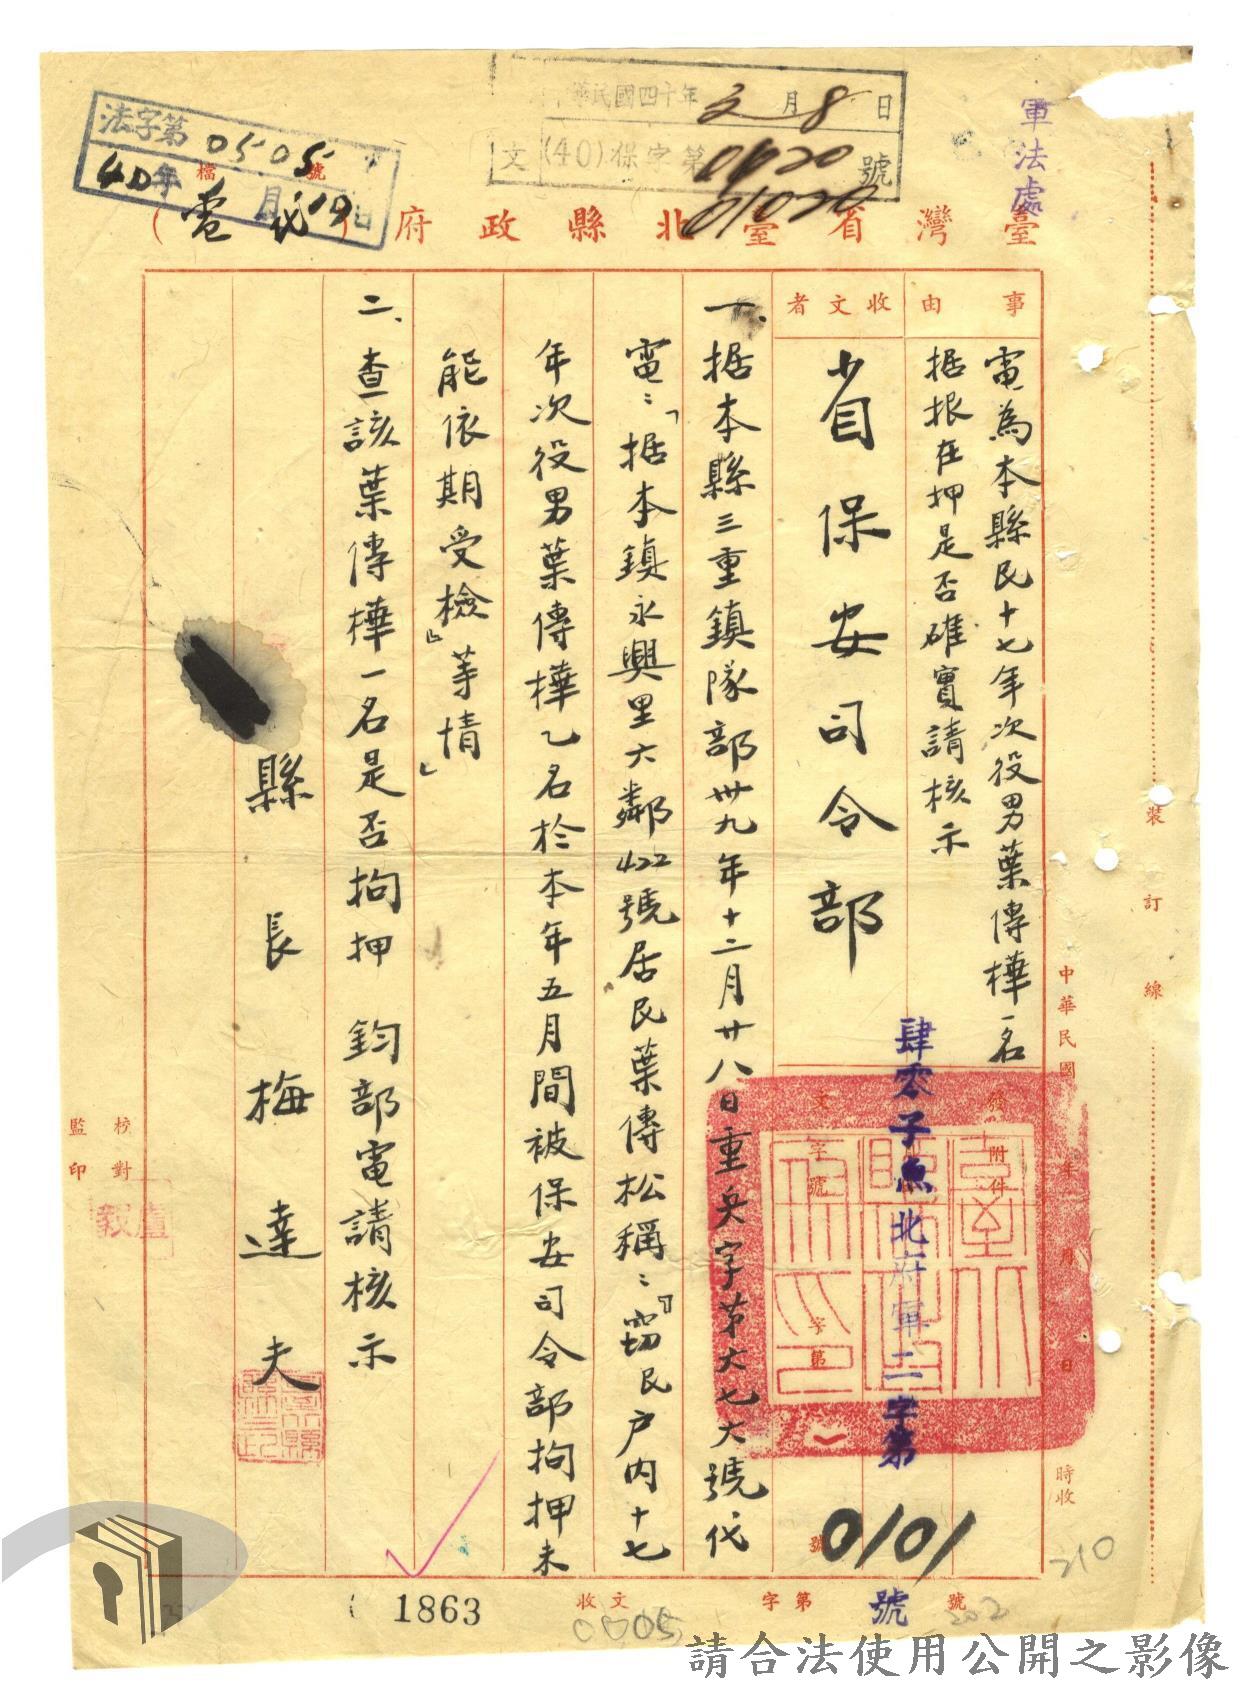 軍法處
中華民國四十年 2月8日
文 (40)保字第 01020 號
法字第0505號
40年 月 19日
臺灣省臺北縣政府(電代)
事由
電為本縣民十七年次役男葉傳樺一名
据报在押是否確實請核示
收文者
省保安司令部
發文
附件
字號
肆零子魚北府軍二字第
0101
號
一、据本縣三重鎮隊部卅九年十二月廿八日重兵字第六七六號代
電:「据本鎮永興里六鄰422號居民葉傳松稱:『竊民户内十七
年次役男葉傳樺乙名於本年五月間被保安司令部拘押未
能依期受檢』等情」
二、查該葉傳樺一名是否拘押 鈞部電請核示
縣長梅達夫
校對
監印
盧毅
中華民國 年 月 日 時收
裝訂線
收文 字第 號
1863
0005
202
210
請合法使用公開之影像